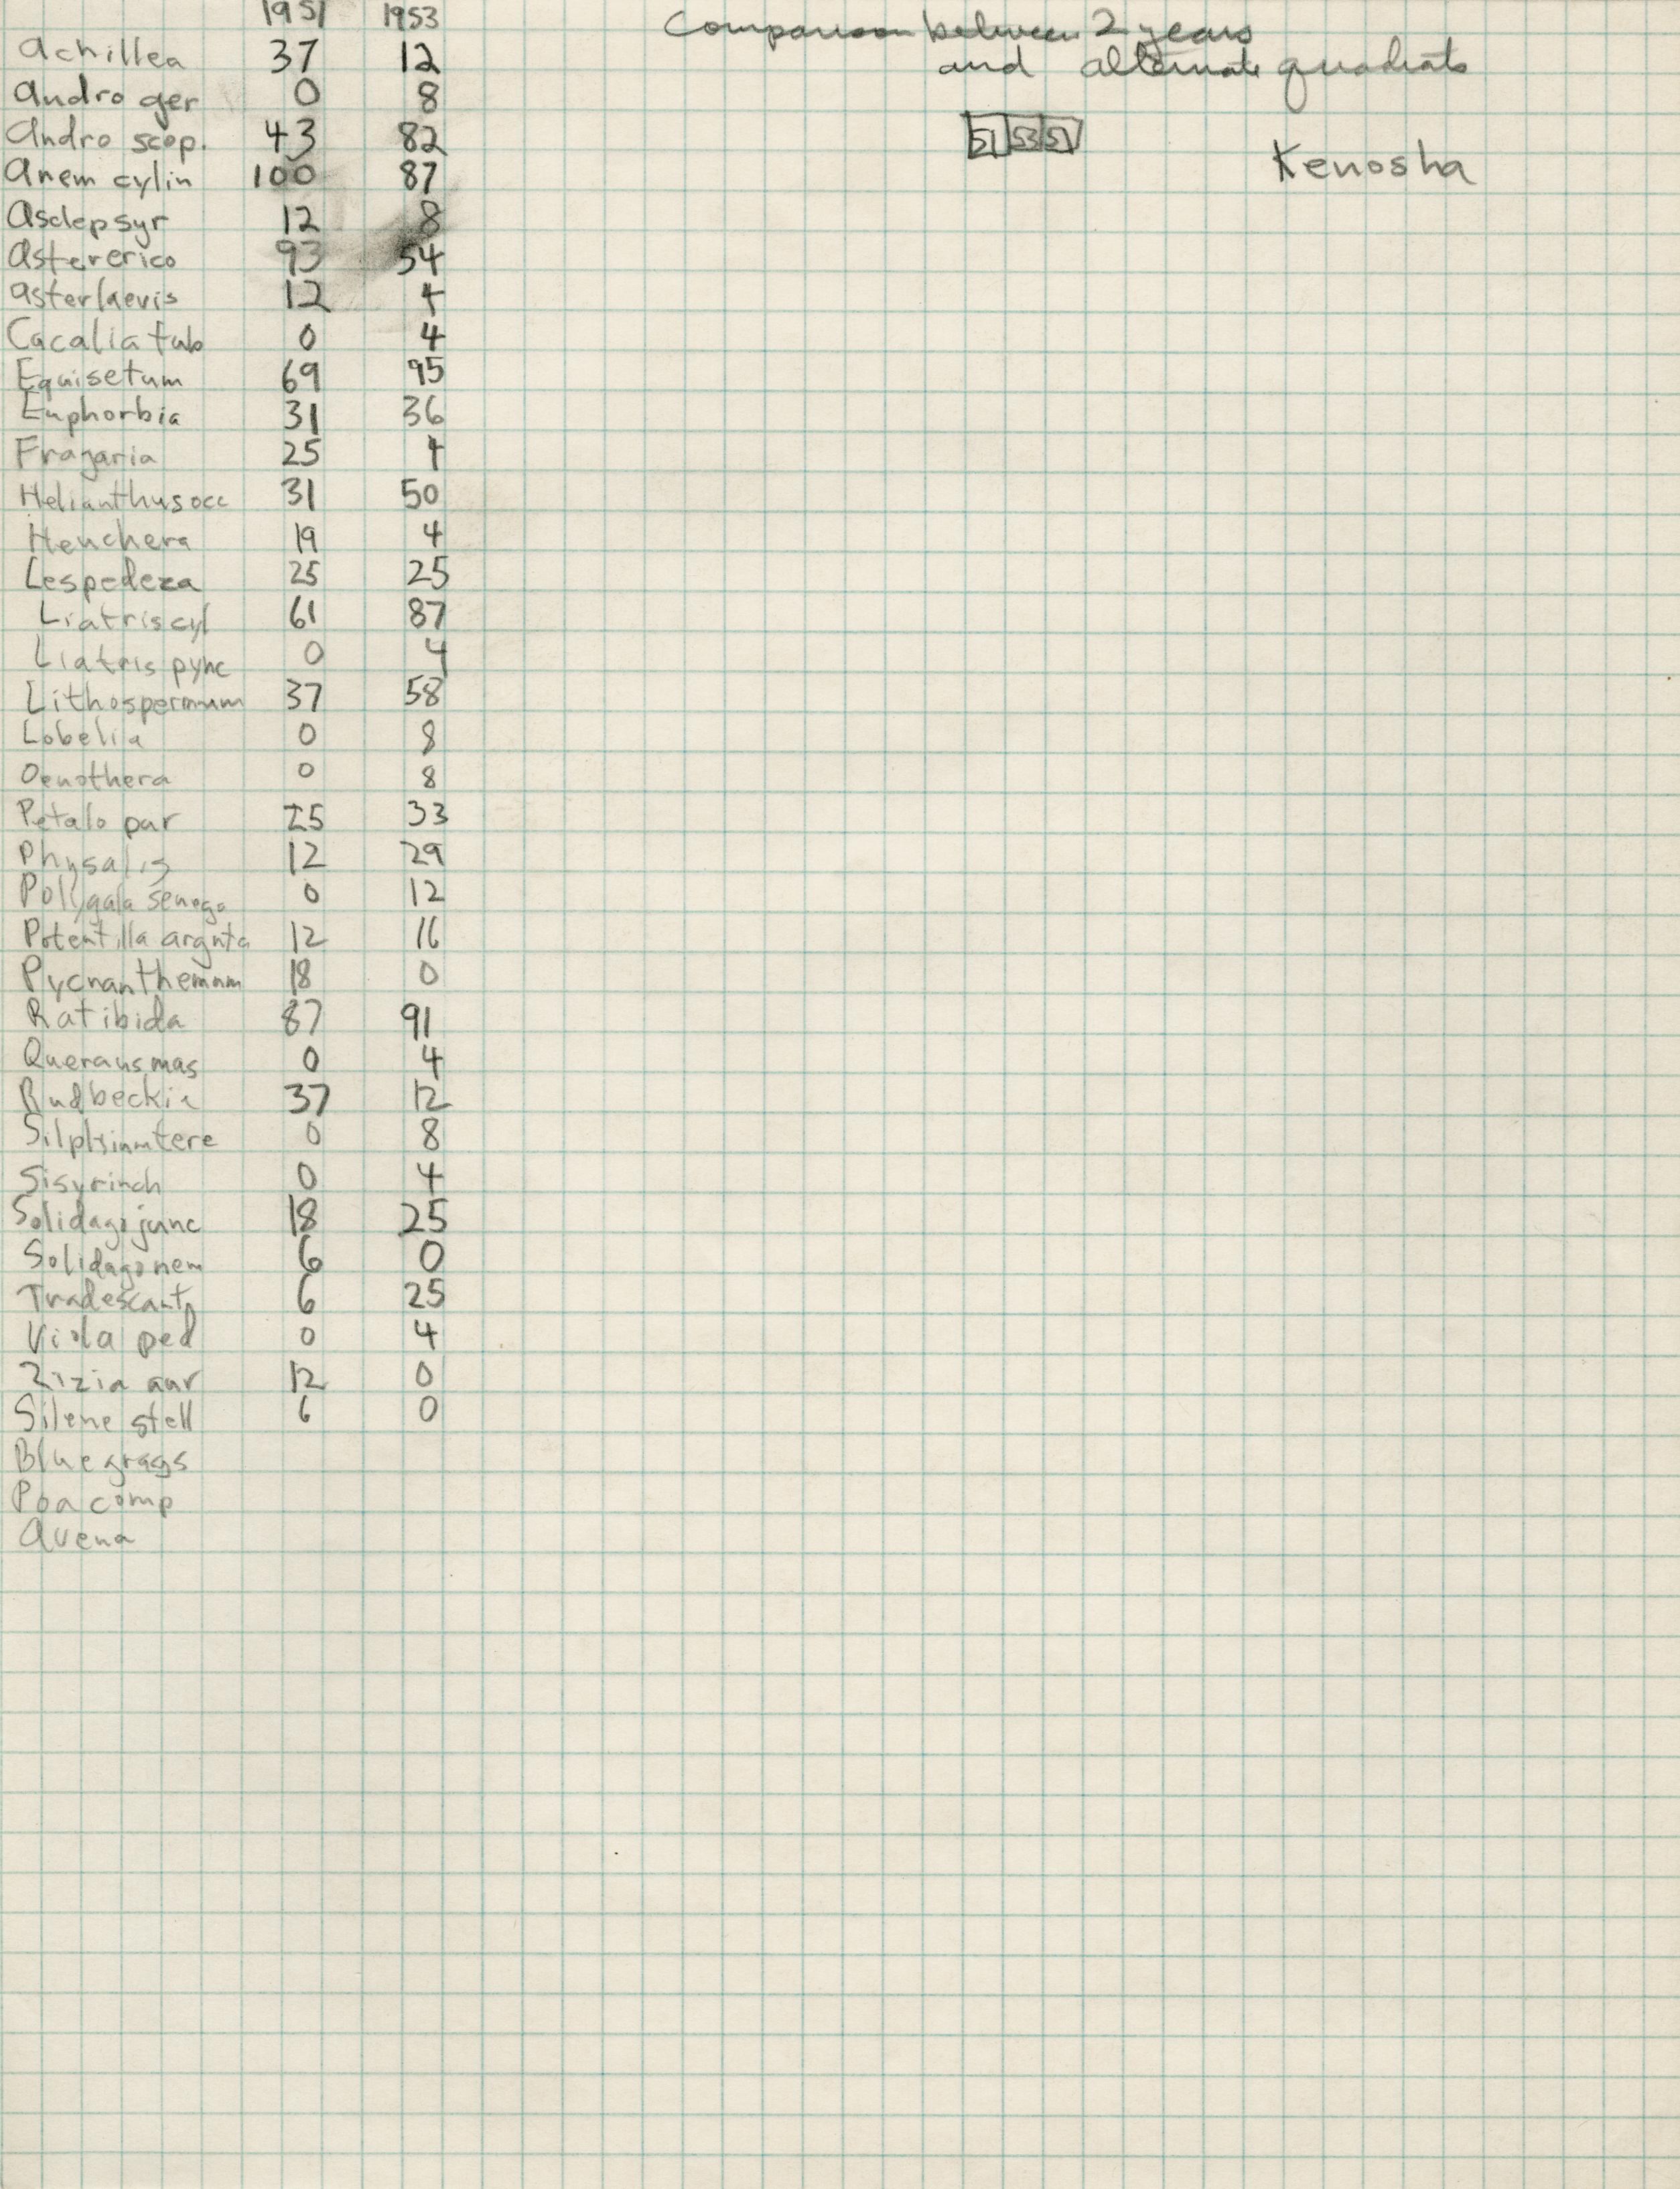 1951 1953
Comparison between 2 years
and alternate quadrats
51 53 51
Kenosha
Achillea 37 12
Andro ger 0 8
Andro scop. 43 82
Anem cylin 100 87
Asclep syr 12 8
Aster erico 93 54
Aster laevis 12 4
Cacalia tub 0 4
Equisetum 69 95
Euphorbia 31 36
Fragaria 25 4
Helianthus occ 31 50
Heuchera 19 4
Lespedeza 25 25
Liatris cyl 61 87
Liatris pync 0 4
Lithospermum 37 58
Lobelia 0 8
Oenothera 0 8
Petalo pur 25 33
Physalis 12 29
Polygala senega 0 12
Potentilla arguta 12 16
Pycnanthemum 18 0
Ratibida 87 91
Quercus mac 0 4
Rudbeckia 37 12
Silphium tere 0 8
Sisyrinch 0 4
Solidago junc 18 25
Solidago nem 6 0
Tradescant 6 25
Viola ped 0 4
Zizia aur 12 0
Silene stell 6 0
Blue grass
Poa comp
Avena